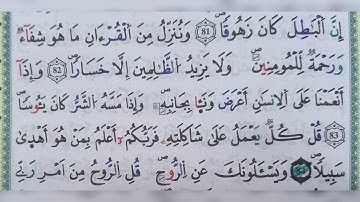 إِنَّ الْبَٰطِلَ كَانَ زَهُوقًا ۝81 وَنُنَزِّلُ مِنَ الْقُرْءَانِ مَا هُوَ شِفَآءٌ
وَرَحْمَةٌ لِّلْمُومِنِينَ وَلَا يَزِيدُ الظَّٰلِمِينَ إِلَّا خَسَارًا ۝82 وَإِذَآ
أَنْعَمْنَا عَلَى الْإِنسَٰنِ أَعْرَضَ وَنَـَٔا بِجَانِبِهِۦ وَإِذَا مَسَّهُ الشَّرُّ كَانَ يَـُٔوسًا
۝83 قُلْ كُلٌّ يَعْمَلُ عَلَىٰ شَاكِلَتِهِۦ فَرَبُّكُمُۥ أَعْلَمُ بِمَنْ هُوَ أَهْدَىٰ
سَبِيلًا ۝84 وَيَسْـَٔلُونَكَ عَنِ الرُّوحِ قُلِ الرُّوحُ مِنَ امْرِ رَبِّي